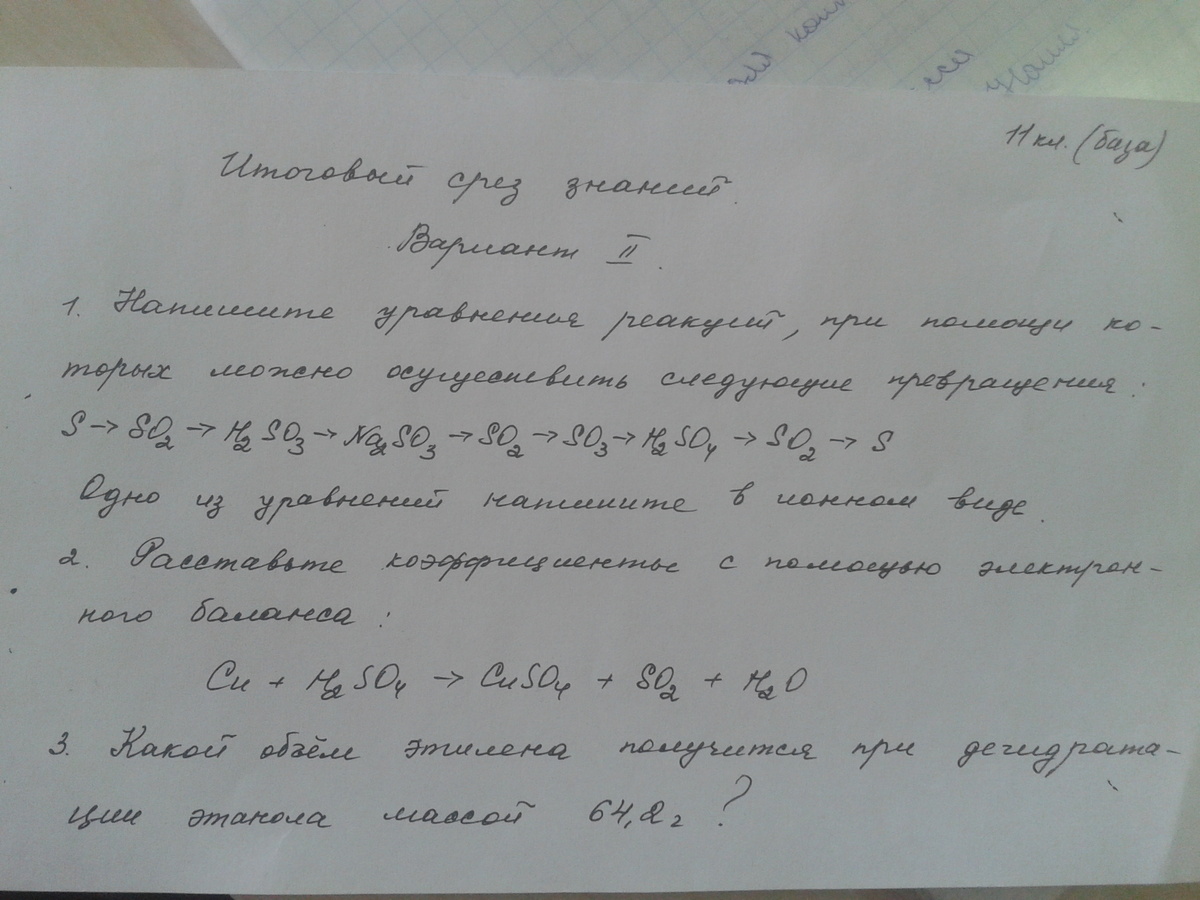 11 кл. (база)
Итоговый срез знаний.
Вариант II.
1. Напишите уравнения реакций, при помощи ко-
торых можно осуществить следующие превращения:
S → SO2 → H2SO3 → Na2SO3 → SO2 → SO3 → H2SO4 → SO2 → S
Одно из уравнений напишите в ионном виде.
2. Расставьте коэффициенты с помощью электрон-
ного баланса:
Cu + H2SO4 → CuSO4 + SO2 + H2O
3. Какой объём этилена получится при дегидрата-
ции этанола массой 64,2 г ?